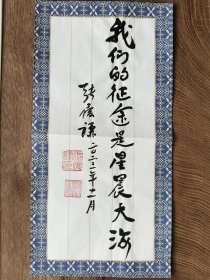 我们的征途是星晨大海
张庆谦二〇二三年十一月